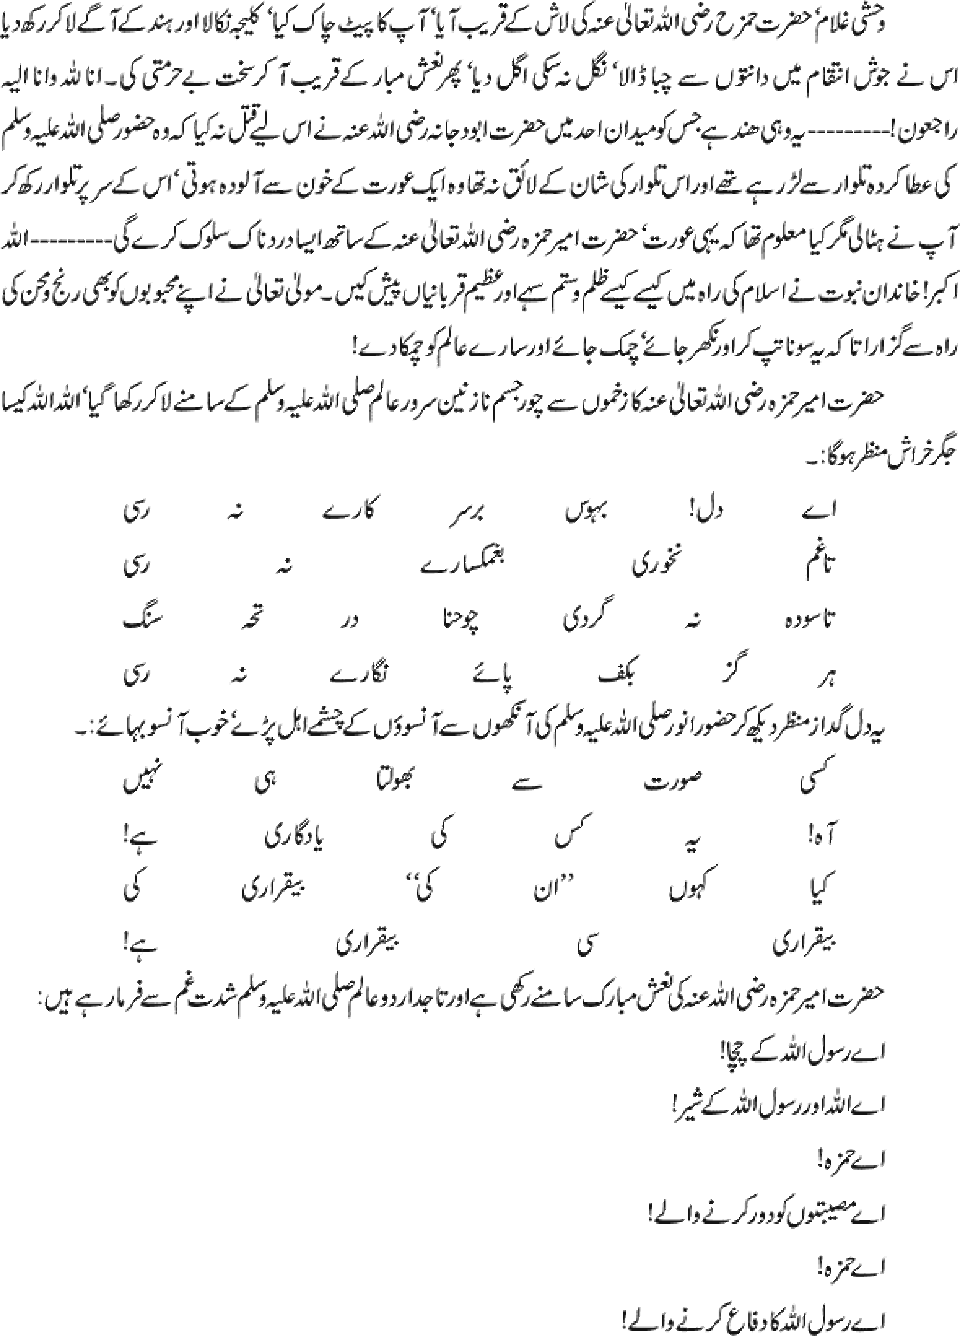 وحشی غلام‘ حضرت حمزح رضی اللہ تعالیٰ عنہ کی لاش کے قریب آیا‘ آپ کا پیٹ چاک کیا‘ کلیجہ نکالا اور ہند کے آگے لا کر رکھ دیا
اس نے جوش انتقام میں دانتوں سے چبا ڈالا‘ نگل نہ سکی اگل دیا‘ پھر نعش مبار کے قریب آ کر سخت بے حرمتی کی۔ انا للہ وانا الیہ
راجعون!----------یہ وہی ھند ہے جس کو میدان احد میں حضرت ابو دجانہ رضی اللہ عنہ نے اس لیے قتل نہ کیا کہ وہ حضور صلی اللہ علیہ وسلم
کی عطا کردہ تلوار سے لڑ رہے تھے اور اس تلوار کی شان کے لائق نہ تھا وہ ایک عورت کے خون سے آلودہ ہوتی‘ اس کے سر پر تلوار رکھ کر
آپ نے ہٹالی مگر کیا معلوم تھا کہ یہی عورت‘ حضرت امیر حمزہ رضی اللہ تعالیٰ عنہ کے ساتھ ایسا دردناک سلوک کرے گی----------اللہ
اکبر! خاندان نبوت نے اسلام کی راہ میں کیسے کیسے ظلم و ستم سہے اور عظیم قربانیاں پیش کیں۔ مولیٰ تعالیٰ نے اپنے محبوبوں کو بھی رنج و محن کی
راہ سے گزارا تا کہ یہ سونا تپ کر اور نکھر جائے‘ چمک جائے اور سارے عالم کو چمکا دے!
حضرت امیر حمزہ رضی اللہ تعالیٰ عنہ کا زخموں سے چور جسم نازنین سرور عالم صلی اللہ علیہ وسلم کے سامنے لا کر رکھا گیا‘ اللہ اللہ کیسا
جگر خراش منظر ہوگا:۔
اے دل! بہوس برسر کارے نہ رسی
تاغم نخوری بغمکسارے نہ رسی
تاسودہ نہ گردی چوحنا در تحہ سنگ
ہر گز بکف پائے نگارے نہ رسی
یہ دل گداز منظر دیکھ کر حضور انور صلی اللہ علیہ وسلم کی آنکھوں سے آنسوؤں کے چشمے اہل پڑے‘ خوب آنسو بہائے:۔
کسی صورت سے بھولتا ہی نہیں
آہ! یہ کس کی یادگاری ہے!
کیا کہوں ’’ان کی‘‘ بیقراری کی
بیقراری سی بیقراری ہے!
حضرت امیر حمزہ رضی اللہ عنہ کی نعش مبارک سامنے رکھی ہے اور تاجدار دو عالم صلی اللہ علیہ وسلم شدت غم سے فرما رہے ہیں:
اے رسول اللہ کے چچا!
اے اللہ اور رسول اللہ کے شیر!
اے حمزہ!
اے مصیبتوں کو دور کرنے والے!
اے حمزہ!
اے رسول اللہ کا دفاع کرنے والے!